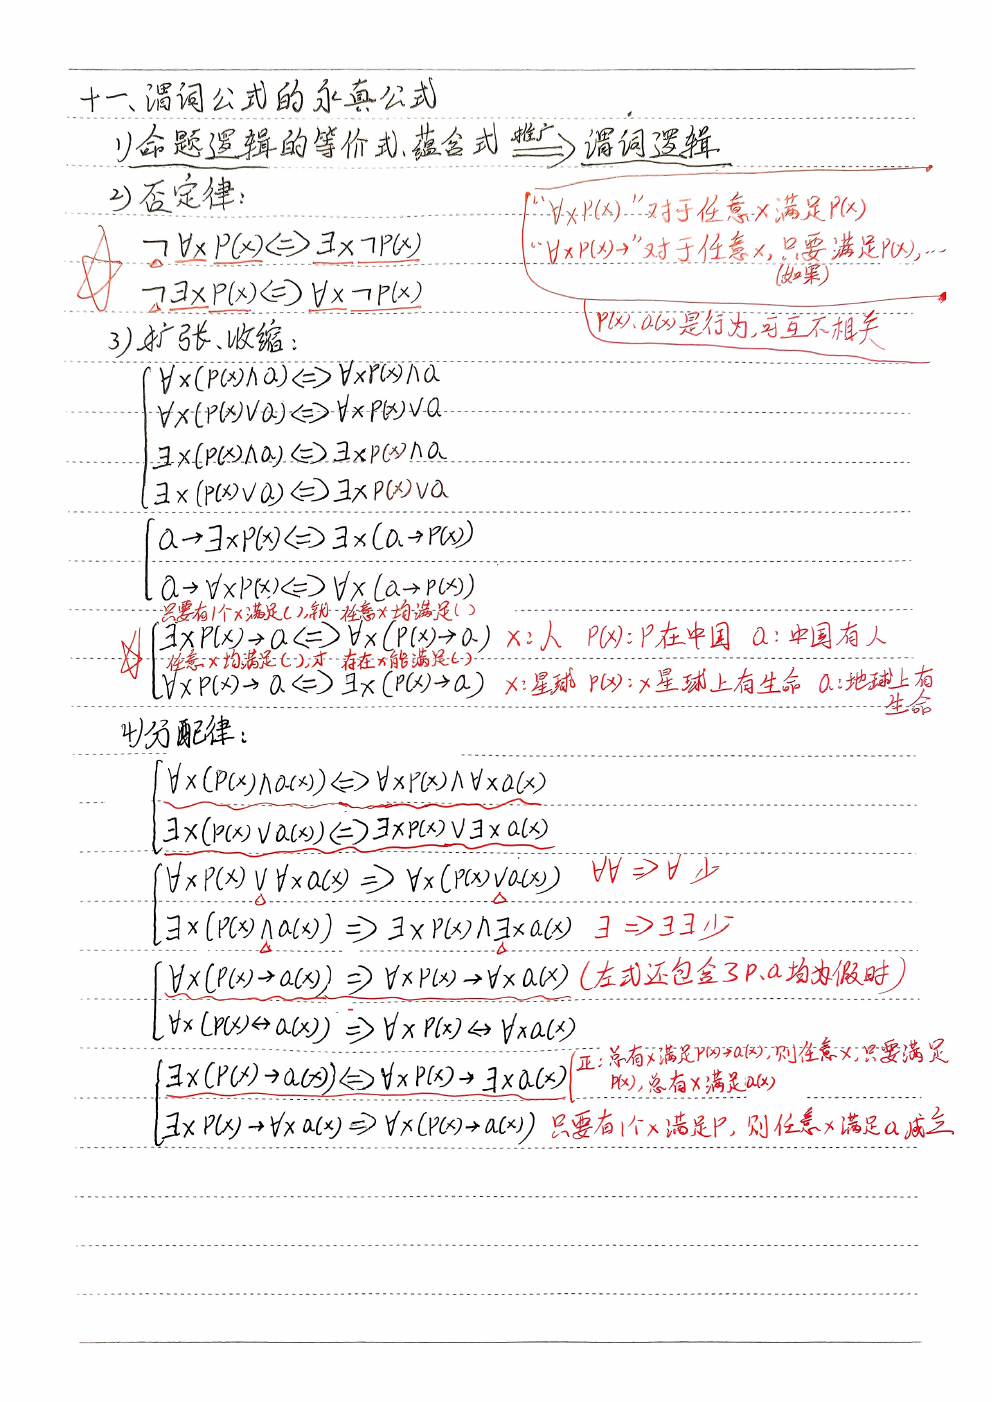 十一、谓词公式的永真公式
1)命题逻辑的等价式、蕴含式 推广⟹ 谓词逻辑
2)否定律:
"∀xP(x)"对于任意x满足P(x)
"∀xP(x)→"对于任意x,只要满足P(x),…
(如果)
¬∀xP(x)<=>∃x¬P(x)
¬∃xP(x)<=>∀x¬P(x)
P(x)、Q(x)是行为,可互不相关
3)扩张、收缩:
∀x(P(x)∧Q)<=>∀xP(x)∧Q
∀x(P(x)∨Q)<=>∀xP(x)∨Q
∃x(P(x)∧Q)<=>∃xP(x)∧Q
∃x(P(x)∨Q)<=>∃xP(x)∨Q
Q→∃xP(x)<=>∃x(Q→P(x))
Q→∀xP(x)<=>∀x(Q→P(x))
只要有1个x满足( ),就 任意x均满足( )
∃xP(x)→Q<=>∀x(P(x)→Q) x:人 P(x):P在中国 Q:中国有人
任意x均满足( ),才 存在x能满足( )
∀xP(x)→Q<=>∃x(P(x)→Q) x:星球 P(x):x星球上有生命 Q:地球上有
生命
4)分配律:
∀x(P(x)∧Q(x))<=>∀xP(x)∧∀xQ(x)
∃x(P(x)∨Q(x))<=>∃xP(x)∨∃xQ(x)
∀xP(x)∨∀xQ(x)=>∀x(P(x)∨Q(x)) ∀∀=>∀ 少
∃x(P(x)∧Q(x))=>∃xP(x)∧∃xQ(x) ∃=>∃∃少
∀x(P(x)→Q(x))=>∀xP(x)→∀xQ(x) (左式还包含了P、Q均为假时)
∀x(P(x)↔Q(x))=>∀xP(x)↔∀xQ(x)
正:总有x满足P(x)→Q(x),则任意x,只要满足
∃x(P(x)→Q(x))<=>∀xP(x)→∃xQ(x) P(x),总有x满足Q(x)
∃xP(x)→∀xQ(x)=>∀x(P(x)→Q(x)) 只要有1个x满足P,则任意x满足Q成立